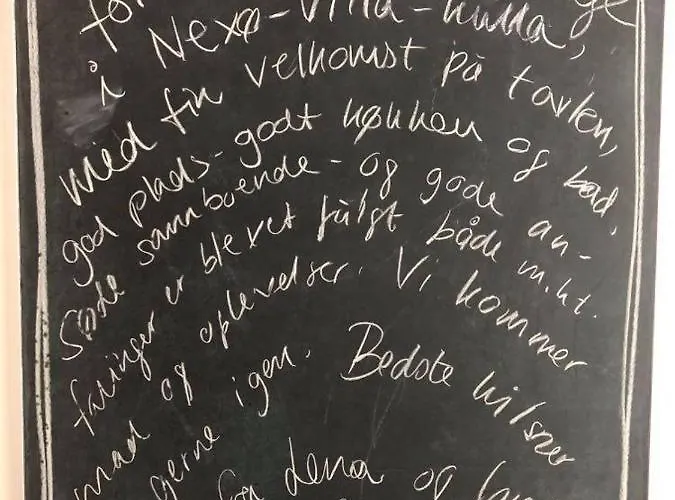 for
i Nexø-Villa-Kulla,
med fin velkomst på tavlen,
god plads - godt køkken og bad,
Søde samboende - og gode an-
falinger er blevet fulgt både m.h.t.
mad og oplevelser. Vi kommer
gerne igen. Bedste hilsner
fra Lena og